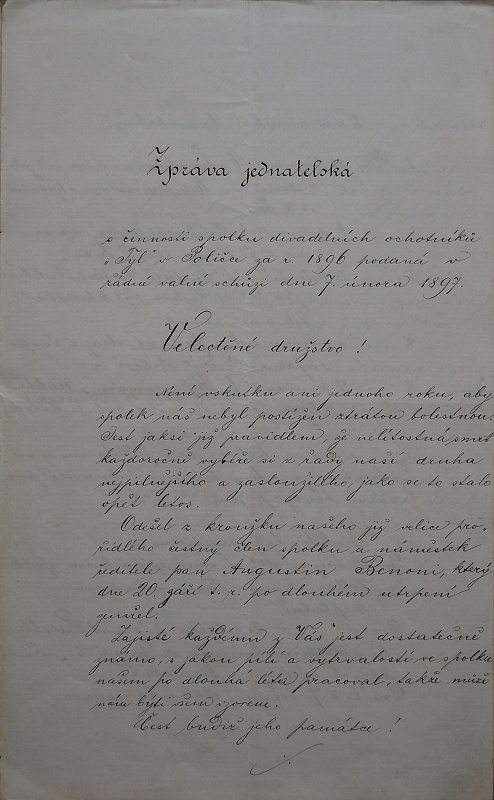 Zpráva jednatelská
o činnosti spolku divadelních ochotníků
„Tyl" v Poličce za r. 1896 podaná v
řádné valné schůzi dne 7. února 1897.
Velectěné družstvo!
Není vskutku ani jednoho roku, aby
spolek náš nebyl postižen ztrátou bolestnou.
Jest jaksi již pravidlem, že nelítostná smrt
každoročně vybéře si z řady naší druha
nejpilnějšího a zasloužilého, jako se to stalo
opět letos.
Odešel z kroužku našeho již velice pro-
řidlého čestný člen spolku a náměstek
ředitele pan Augustin Benoni, který
dne 20. září t. r. po dlouhém utrpení
zemřel.
Zajisté každému z Vás jest dostatečně
známo, s jakou pílí a vytrvalostí ve spolku
našem po dlouhá léta pracoval, takže může
nám býti všem vzorem.
Čest budiž jeho památce!